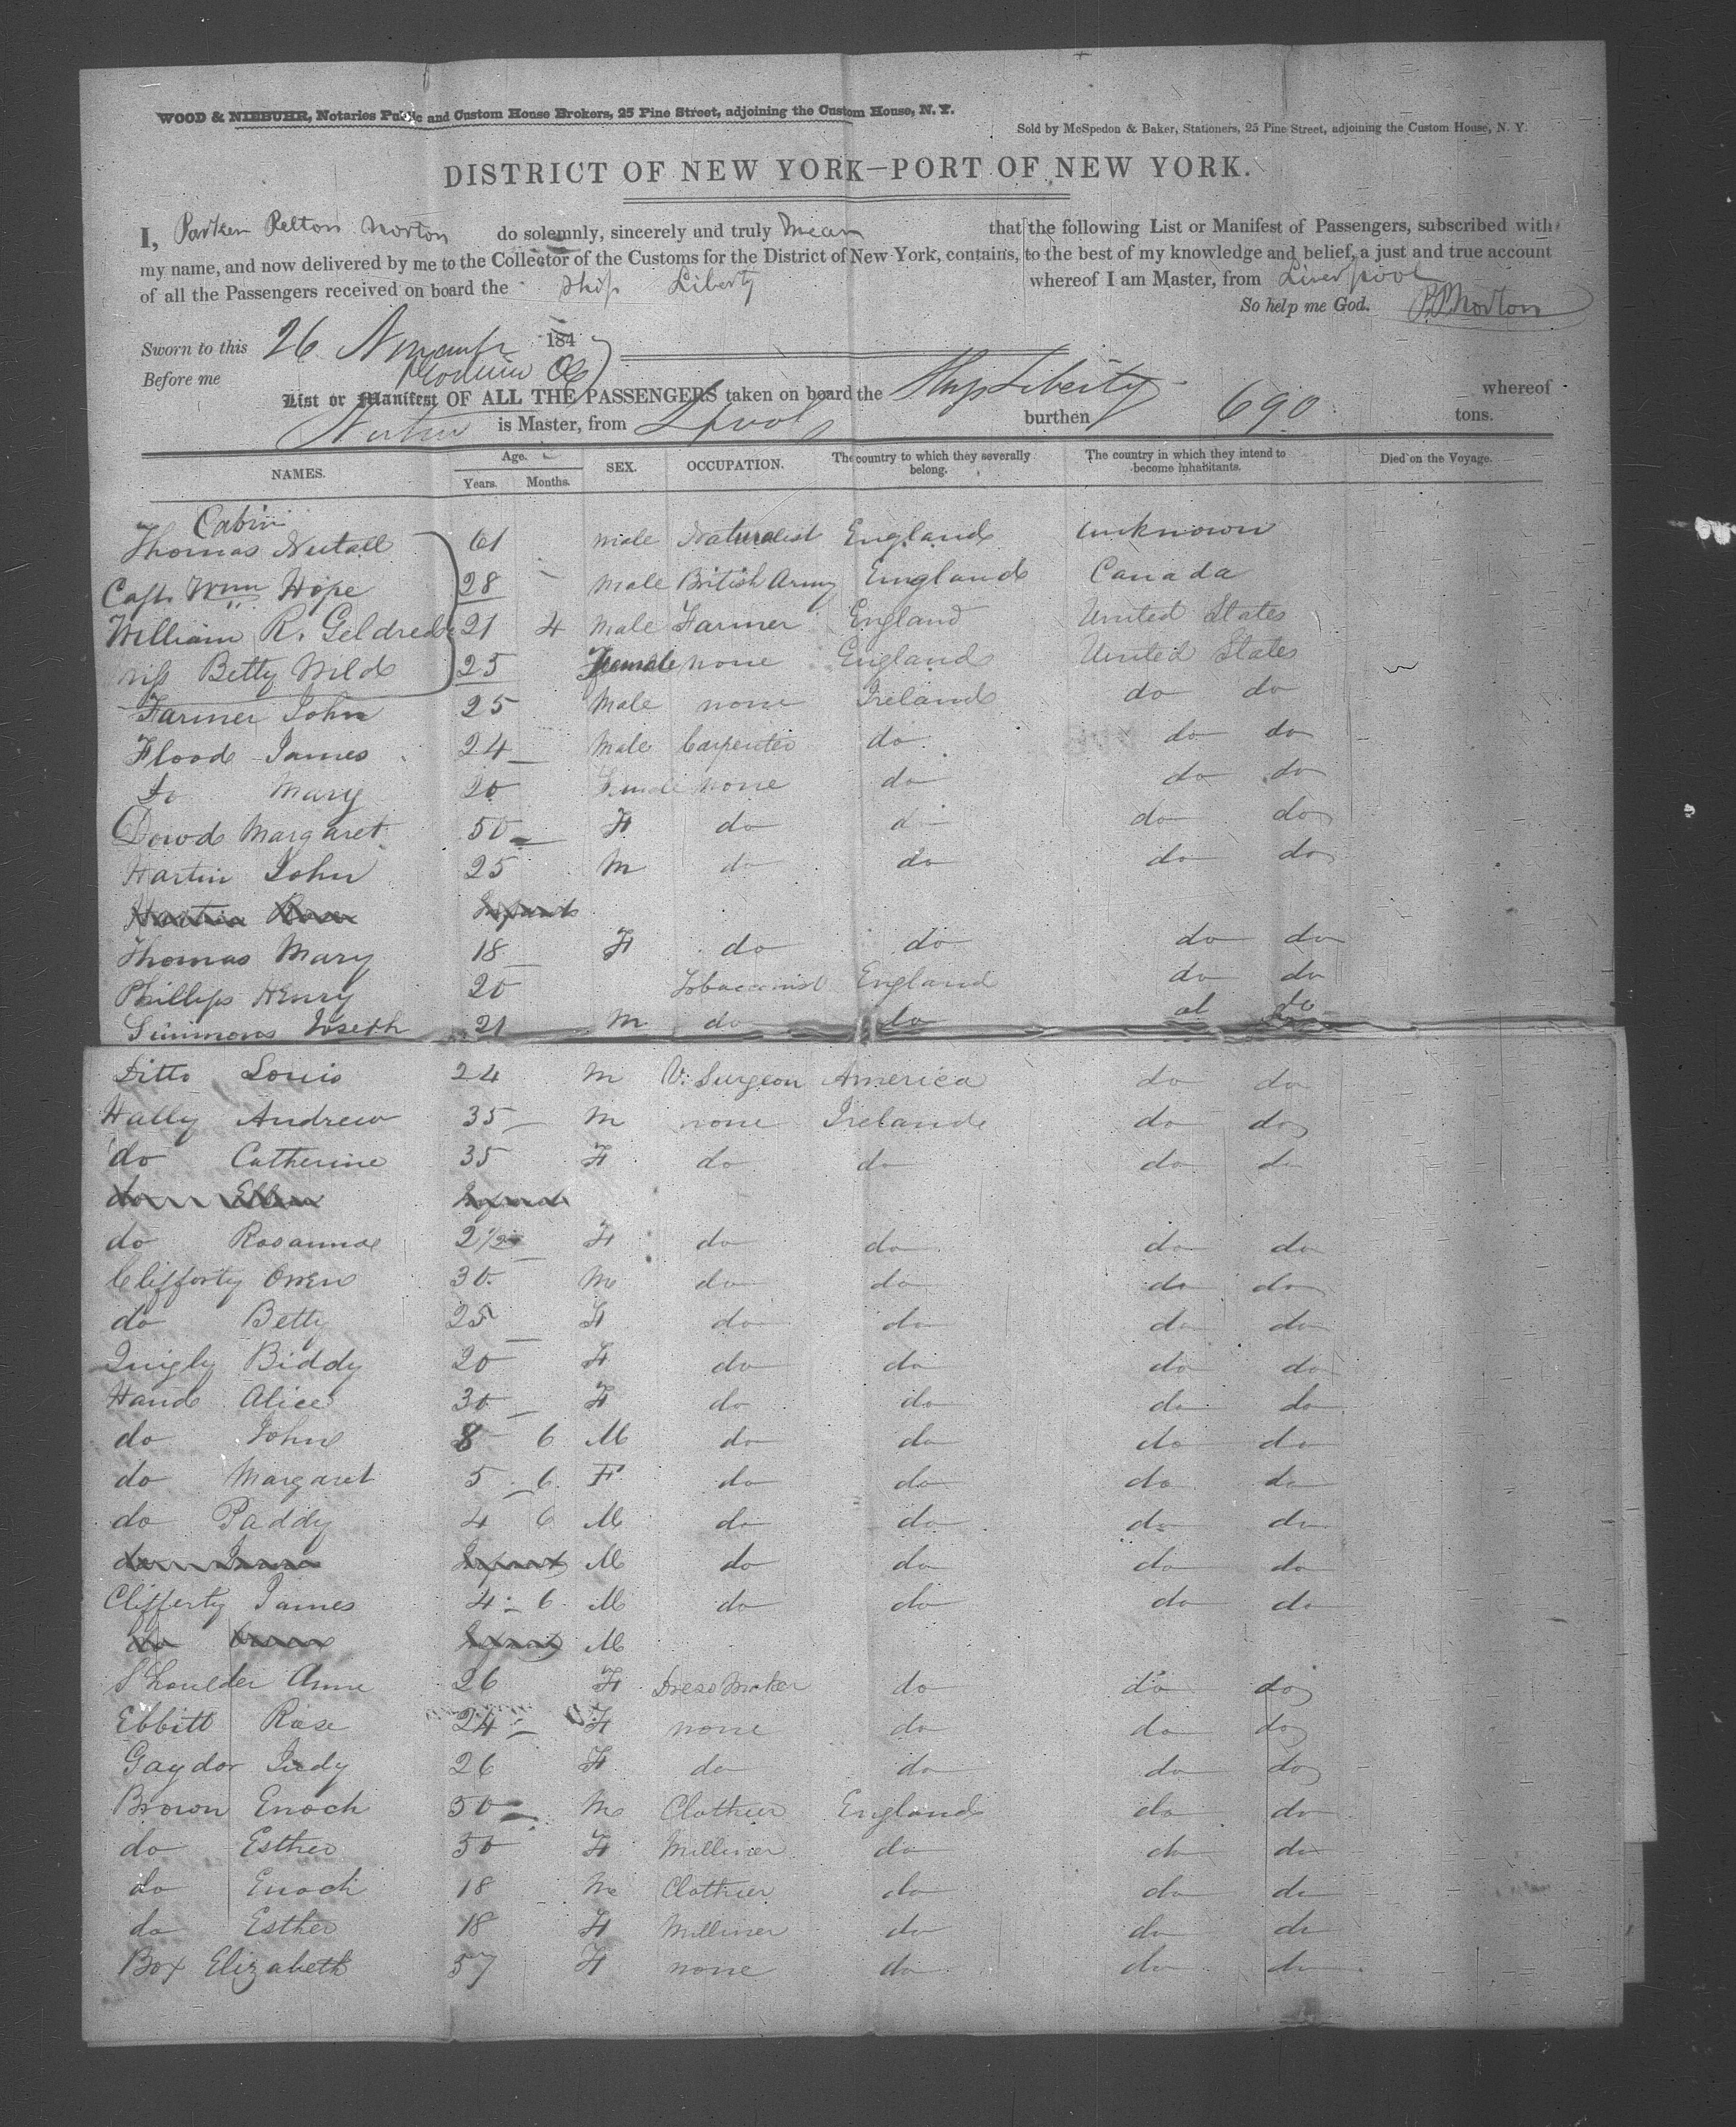 WOOD & NIEBUHR, Notaries Public and Custom House Brokers, 25 Pine Street, adjoining the Custom House, N. Y.
Sold by McSpedon & Baker, Stationers, 25 Pine Street, adjoining the Custom House, N. Y.
DISTRICT OF NEW YORK—PORT OF NEW YORK.
I, Parker Pelton Norton do solemnly, sincerely and truly swear that the following List or Manifest of Passengers, subscribed with
my name, and now delivered by me to the Collector of the Customs for the District of New York, contains, to the best of my knowledge and belief, a just and true account
of all the Passengers received on board the Ship Liberty whereof I am Master, from Liverpool
So help me God. P.P. Norton
Sworn to this 26 184
Before me
List or Manifest OF ALL THE PASSENGERS taken on board the Ship Liberty whereof
Norton is Master, from Lpool burthen 690 tons.
NAMES. Age. Years. Months. SEX. OCCUPATION. The country to which they severally belong. The country in which they intend to become inhabitants. Died on the Voyage.
Cabin
Thomas Nuttall 61 male Naturalist England unknown
Capt. Wm Hope 28 male British Army England Canada
William R. Geldred 21 4 male Farmer England United States
Miss Betty Wild 25 Female none England United States
Farmer John 25 Male none Ireland do do
Flood James 24 Male Carpenter do do do
Do Mary 20 Female none do do do
Dowd Margaret 50 F do do do do
Martin John 25 M do do do do
Infant
Thomas Mary 18 F do do do do
Phillips Henry 20 Tobacconist England do do
Simmons Joseph 21 M do do do do
Ditto Louis 24 M V. Surgeon America do do
Hally Andrew 35 M none Ireland do do
do Catherine 35 F do do do do
do Ellen Infant
do Rosanna 2 1/2 F do do do do
Clifferty Owen 30 M do do do do
do Betty 25 F do do do do
Quigly Biddy 20 F do do do do
Hand Alice 30 F do do do do
do John 8 6 M do do do do
do Margaret 5 6 F do do do do
do Paddy 4 6 M do do do do
do Infant M do do do do
Clifferty James 4 6 M do do do do
do Infant M
Shoulder Anne 26 F Dress Maker do do do
Ebbitt Rose 24 F none do do do
Gaydor Judy 26 F do do do do
Brown Enoch 50 M Clothier England do do
do Esther 50 F Milliner do do do
do Enoch 18 M Clothier do do do
do Esther 18 F Milliner do do do
Box Elizabeth 57 F none do do do